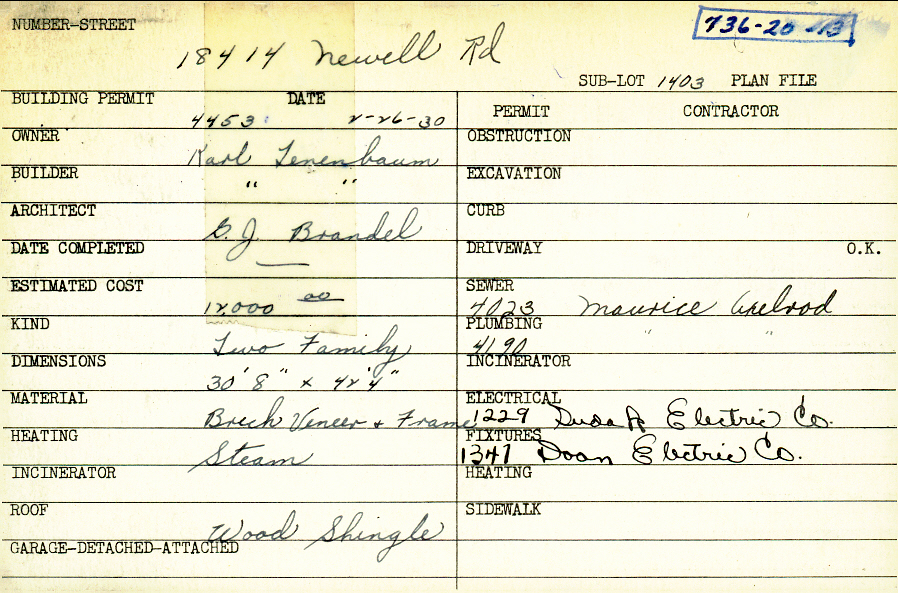 NUMBER-STREET
736-20-13
18414 Newell Rd
SUB-LOT 1403 PLAN FILE
BUILDING PERMIT DATE
4453 2-26-30
PERMIT CONTRACTOR
OWNER
Karl Tenenbaum
OBSTRUCTION
BUILDER
" "
EXCAVATION
ARCHITECT
G.J. Brandel
CURB
DATE COMPLETED
—
DRIVEWAY O.K.
ESTIMATED COST
12,000 00
SEWER
4023 Maurice Axelrod
KIND
Two Family
PLUMBING
4190 " "
DIMENSIONS
30' 8" x 42' 4"
INCINERATOR
MATERIAL
Brick Veneer + Frame
ELECTRICAL
1229 Electric Co.
HEATING
Steam
FIXTURES
1347 Doan Electric Co.
INCINERATOR
HEATING
ROOF
Wood Shingle
SIDEWALK
GARAGE-DETACHED-ATTACHED